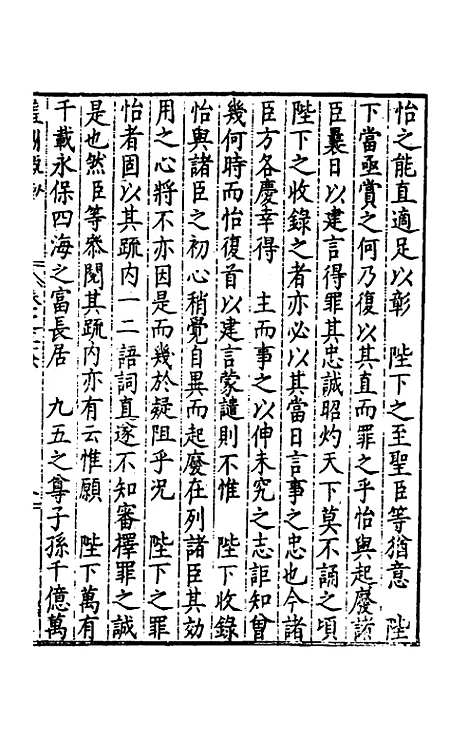 怡之能直適足以彰　陛下之至聖臣等猶意　陛
下當亟賞之何乃復以其直而罪之乎怡與起廢諸
臣曩日以建言得罪其忠誠昭灼天下莫不誦之頃
陛下之收錄之者亦必以其當日言事之忠也今諸
臣方各慶幸得　主而事之以伸未究之志詎知曾
幾何時而怡復首以建言蒙譴則不惟　陛下收錄
怡與諸臣之初心稍覺自異而起廢在列諸臣其効
用之心將不亦因是而幾於疑阻乎況　陛下之罪
怡者固以其疏内一二語詞真遂不知審擇罪之誠
是也然臣等叅閱其疏内亦有云惟願　陛下萬有
千載永保四海之富長居　九五之尊子孫千億萬